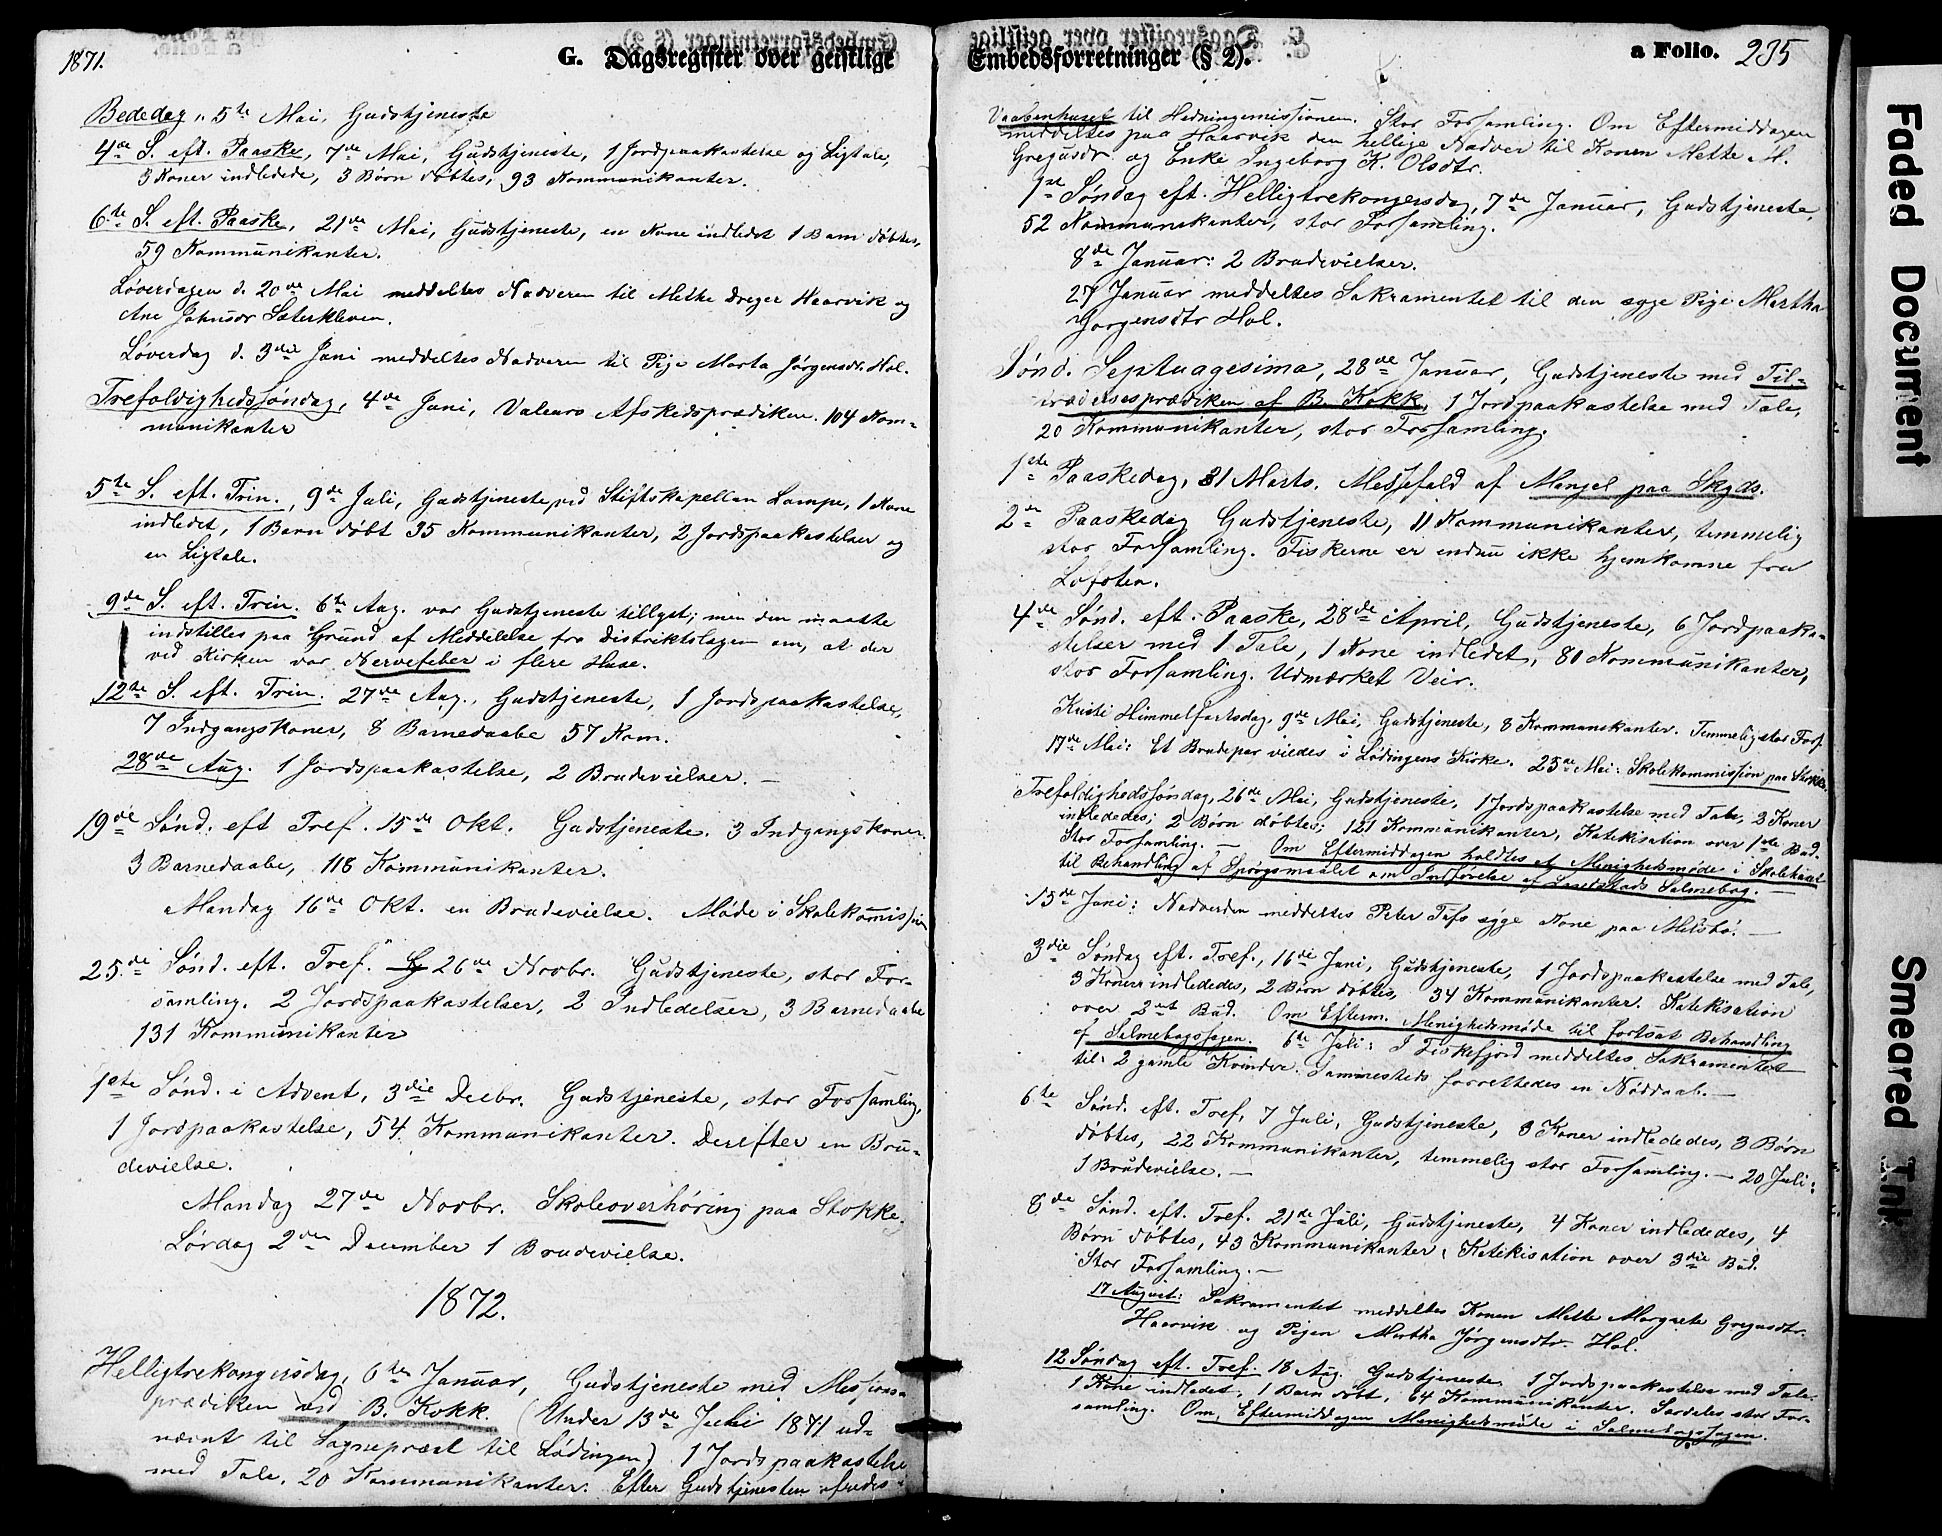 1871.
G. Dagsregister over geistlige
Bededag, 5te Mai, Gudstjeneste
4de S. eft. Paaske, 7de Mai, Gudstjeneste, 1 Jordpaakastelse og Ligtale,
3 Koner indledede, 3 Børn døbtes, 93 Kommunikanter.
6te S. eft. Paaske, 21de Mai, Gudstjeneste, en Kone indledet 1 Barn døbtes,
59 Kommunikanter.
Løverdagen d. 20de Mai meddeltes Nadveren til Methe Greger Haarvik og
Ane Johnsdr Sæterkleven.
Løverdag d. 3die Juni meddeltes Nadveren til Pige Marta Jørgensdr. Hol.
Trefoldighedssøndag, 4de Juni, Afskedsprædiken. 104 Kom-
munikanter
5te S. eft. Trin., 9de Juli, Gudstjeneste ved Stiftskapellan Lampe, 1 Kone
indledet, 1 Barn døbt 35 Kommunikanter, 2 Jordspaakastelser og
en Ligtale.
9de S. eft. Trin. 6te Aug. var Gudstjeneste tillyst; men den maatte
indstilles paa Grund af Meddelelse fra Distriktslægen om, at der
ved Kirken var Nervefeber i flere Huse.
12te S. eft. Trin. 27de Aug., Gudstjeneste, 1 Jordspaakastelse,
7 Indgangskoner, 8 Barnedaabe 57 Kom.
28de Aug. 1 Jordspaakastelse, 2 Brudevielser. —
19de Sønd. eft Tref. 15de Okt. Gudstjeneste. 3 Indgangskoner.
3 Barnedaabe, 118 Kommunikanter.
Mandag 16de Okt. en Brudevielse. Møde i Skolekommission
25de Sønd. eft. Tref. 26de Novbr. Gudstjeneste, stor For-
samling. 2 Jordspaakastelser, 2 Indledelser, 3 Barnedaabe
131 Kommunikanter
1ste Sønd. i Advent, 3die Decbr. Gudstjeneste, stor Forsamling,
1 Jordpaakastelse, 54 Kommunikanter. Derefter en Bru-
devielse.
Mandag 27de Novbr. Skoleoverhøring paa Stokke.
Lørdag 2den December 1 Brudevielse.
1872.
Helligtrekongersdag, 6te Januar, Gudstjeneste med Missions-
prædiken ved B. Kokk. (Under 13de Juli 1871 ud-
nævnt til Sognepræst til Lødingen) 1 Jordspaakastelse
med Tale. 20 Kommunikanter. Efter Gudstjenesten ofredes i
Embedsforretninger (§ 2).
a Folio. 235
Vaabenhuset til Hedningemissionen. Stor Forsamling. Om Eftermiddagen
meddeltes paa Haarvik den hellige Nadver til Konen Mette M.
Gregusdr. og Enke Ingeborg K. Olsdtr.
1ste Søndag eft. Helligtrekongersdag, 7de Januar, Gudstjeneste,
52 Kommunikanter, stor Forsamling.
8de Januar: 2 Brudevielser.
27 Januar meddeltes Sakramentet til den syge Pige Martha
Jørgensdtr Hol.
Sønd. Septuagesima, 28de Januar, Gudstjeneste med Til-
trædelsesprædiken af B. Kokk, 1 Jordpaakastelse med Tale,
20 Kommunikanter, stor Forsamling.
1ste Paaskedag, 31 Marts. Messefald af Mangel paa Skyds.
2den Paaskedag Gudstjeneste, 11 Kommunikanter, temmelig
stor Forsamling. Fiskerne er endnu ikke hjemkomne fra
Lofoten.
4de Sønd. eft. Paaske, 28de April, Gudstjeneste, 6 Jordpaaka-
stelser med 1 Tale, 1 Kone indledet, 80 Kommunikanter,
stor Forsamling. Udmærket Veir.
Kristi Himmelfartsdag, 9de Mai, Gudstjeneste, 8 Kommunikanter. Temmelig stor Fors.
17de Mai: Et Brudepar viedes i Lødingens Kirke. 25de Mai: Skolekommission paa Stokke.
Trefoldighedssøndag, 26de Mai, Gudstjeneste, 1 Jordspaakastelse med Tale, 3 Koner
indlededes; 2 Børn døbtes; 121 Kommunikanter, Katekisation over 1ste Bud.
Stor Forsamling. — Om Eftermiddagen holdtes et Menighedsmøde i Skolehuset
til Behandling af Spørgsmaalet om Indførelse af Landstads Salmebog. —
15de Juni: Nadverden meddeltes Peter syge Kone paa
3die Søndag eft. Tref., 16de Juni, Gudstjeneste, 1 Jordspaakastelse med Tale,
3 Koner indlededes, 2 Børn døbtes, 34 Kommunikanter. Katekisation
over 2det Bud. Om Efterm. Menighedsmøde til fortsat Behandling
af Salmebogssagen. 6te Juli: I Fiskefjord meddeltes Sakramentet
til 2 gamle Kvinder. Sammesteds forrettedes en Nøddaab. —
6te Sønd. eft. Tref, 7 Juli, Gudstjeneste, 3 Koner indlededes, 3 Børn
døbtes, 22 Kommunikanter, temmelig stor Forsamling. — 20 Juli:
1 Brudevielse. —
8de Sønd. eft. Tref. 21de Juli, Gudstjeneste, 4 Koner indlededes, 4
Børn døbtes, 43 Kommunikanter, Katekisation over 3die Bud.
Stor Forsamling. —
17 August: Sakramentet meddeltes Konen Mette Margrete Gregusdtr.
Haarvik og Pigen Martha Jørgensdtr. Hol.
12 Søndag eft. Tref. 18 Aug. Gudstjeneste. 1 Jordspaakastelse med Tale.
1 Kone indledet, 1 Barn døbt, 64 Kommunikanter. Særdeles stor For-
samling. Om Eftermiddagen Menighedsmøde i Salmebogssagen.
Faded Document
Smeared Ink